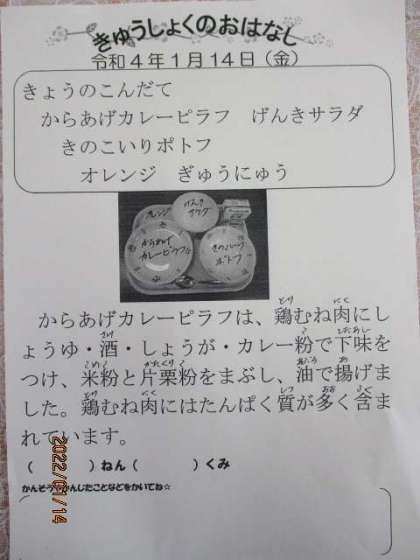 きゅうしょくのおはなし
令和4年1月14日（金）
きょうのこんだて
からあげカレーピラフ　げんきサラダ
きのこいりポトフ
オレンジ　ぎゅうにゅう
オレンジ
げんき
サラダ
からあげ
カレーピラフ
きのこいり
ポトフ
からあげカレーピラフは、鶏むね肉にし
ょうゆ・酒・しょうが・カレー粉で下味を
つけ、米粉と片栗粉をまぶし、油で揚げま
した。鶏むね肉にはたんぱく質が多く含ま
れています。
（　　　　）ねん（　　　　）くみ
かんそう・かんじたことなどをかいてね☆
2022/01/14